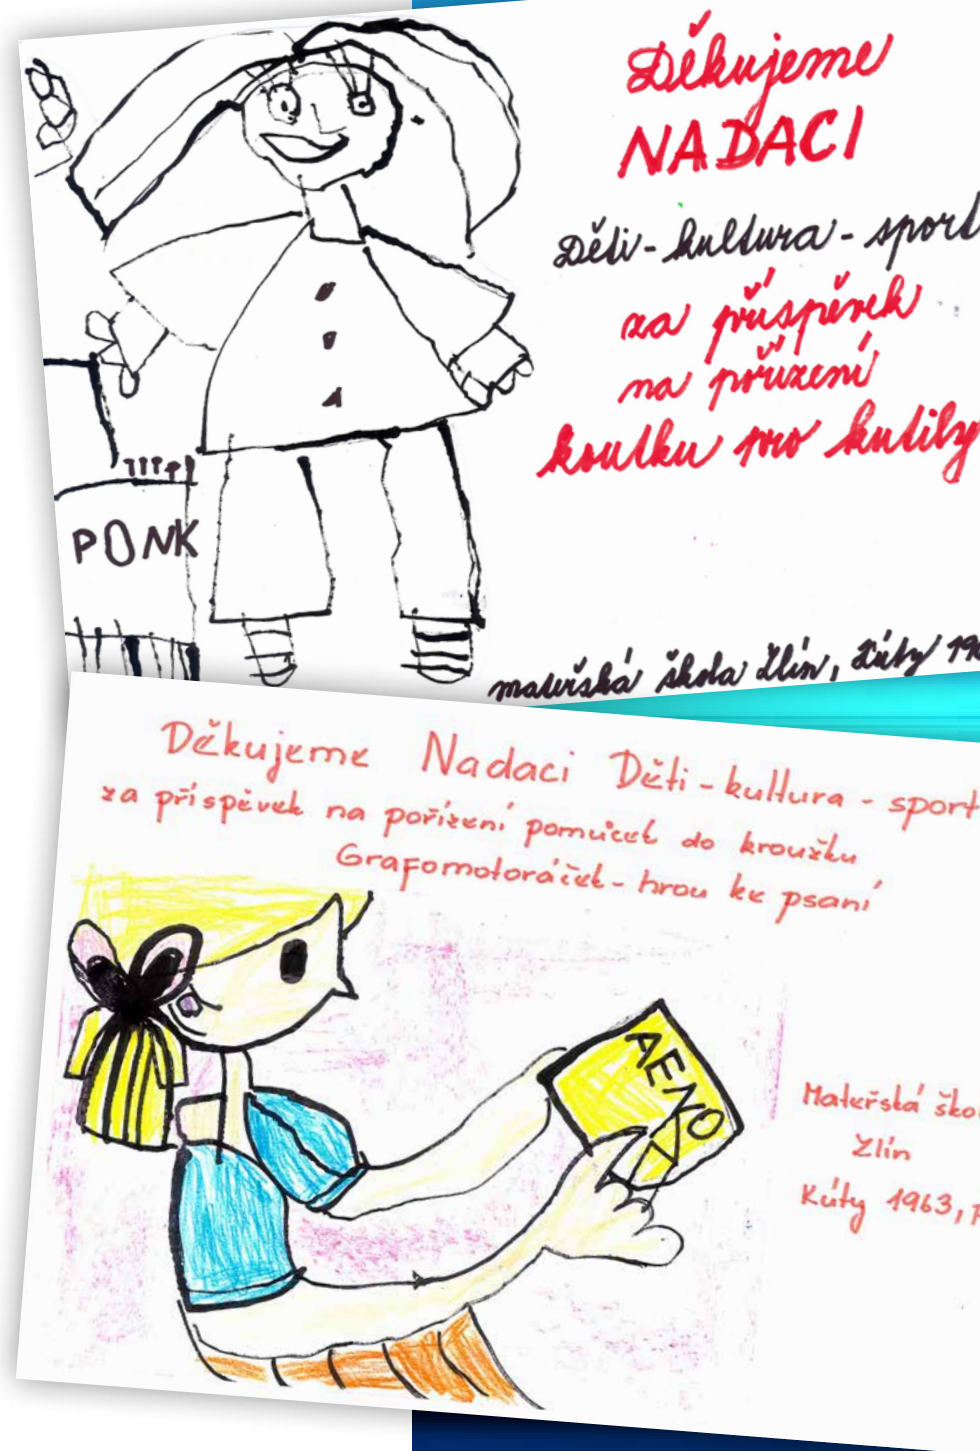 Děkujeme
NADACI
Děti - kultura - sport
za příspěvek
na pořízení
koutku pro kutily
PONK
mateřská škola Zlín, Kúty 196
Děkujeme Nadaci Děti - kultura - sport
za příspěvek na pořízení pomůcek do kroužku
Grafomotoráček - hrou ke psaní
AENO
Mateřská ško
Zlín
Kúty 1963,